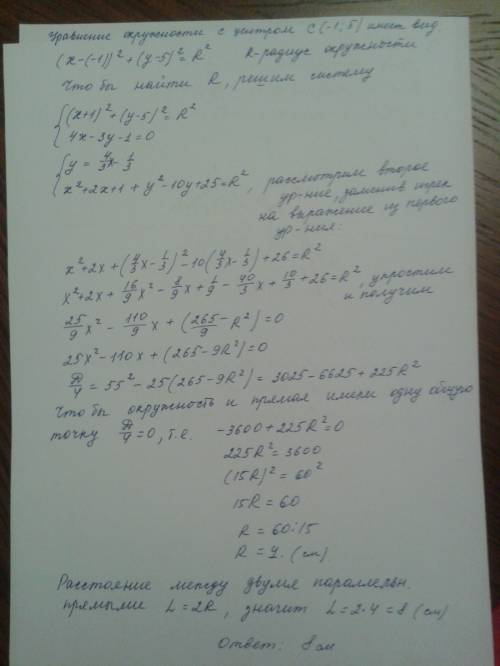 Уравнение окружности с центром C(-1; 5) имеет вид
(x-(-1))² + (y-5)² = R²   R-радиус окружности
Что бы найти R, решим систему
{(x+1)² + (y-5)² = R²
4x-3y-1=0
{y = 4/3x - 1/3
x²+2x+1 + y²-10y+25=R², рассмотрим второе
ур-ние, заменив игрек
на выражение из первого
ур-ния:
x²+2x+(4/3x-1/3)²-10(4/3x-1/3)+26=R²
x²+2x+16/9x²-8/9x+1/9-40/3x+10/3+26=R², упростим
и получим
25/9x² - 110/9x + (265/9 - R²)=0
25x²-110x+(265-9R²)=0
Д/4 = 55²-25(265-9R²)=3025-6625+225R²
Что бы окружность и прямая имели одну общую
точку Д/4=0, т.е. -3600+225R²=0
225R²=3600
(15R)²=60²
15R=60
R=60:15
R=4. (см)
Расстояние между двумя параллельн.
прямыми L=2R, значит L=2·4=8 (см)
Ответ: 8 см